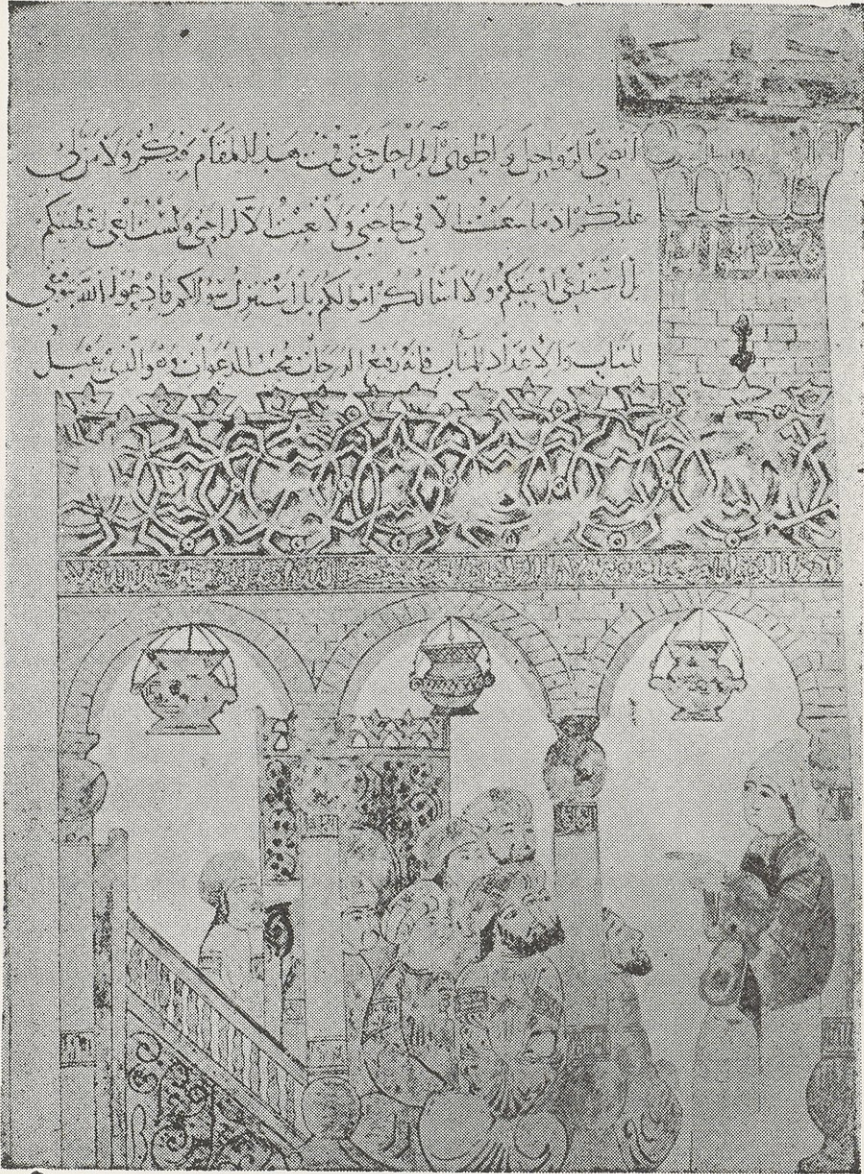 أنضي الرواحل واطوي المراحل حتى قمت هذا المقام فيكم ولا من لي
عليكم اذ ما سعيت الا في حاجتي ولا تعبت الا لراحتي ولست ابغي اعطيتكم
بل استدعي ادعيتكم ولا اسألكم اموالكم بل استنزل سؤالكم فادعوا الله بتوفيقي
للمتاب والاعداد للمآب فانه رفيع الدرجات مجيب الدعوات وهو الذي يقبل